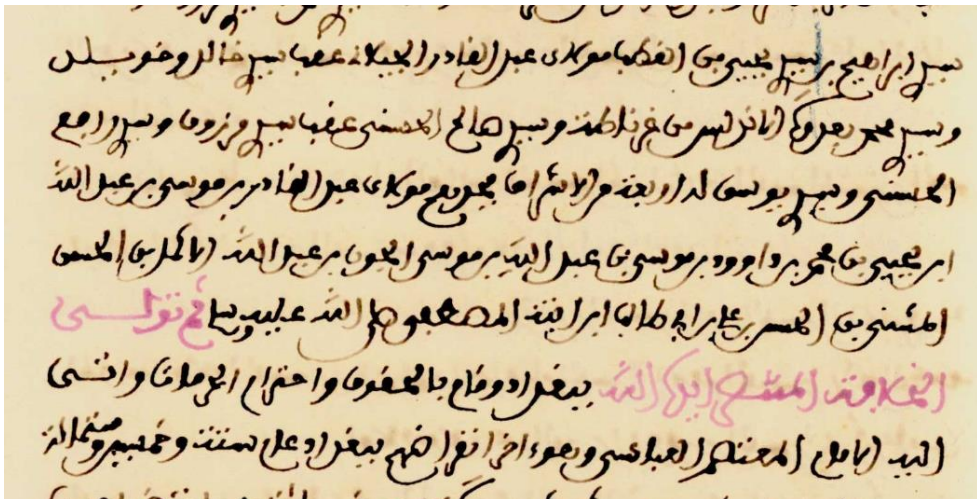 سيد ابراهيم بن سيد يحيى من القطب مولاى عبد القادر الجيلانى عقب سيد خالد وخويلد
وسيد محمد بعدوة الاندلس من غرناطة وسيد صالح الحسنى عقب سيد مرزوق وسيد راجع
الحسنى وسيد يوسف له اربعة من الاشراف يجمع مولاى عبد القادر بن موسى بن عبد الله
ابن يحيى بن محمد بن داوود بن موسى بن عبد الله بن موسى الجون بن عبد الله الكامل بن الحسن
المثنى بن الحسن بن على بن ابى طالب ابن ابنة المصطفى صلى الله عليه وسلم ثم تولى
الخلافة المستضى ايده الله ببغداد وقام بالحقوق واحترام الحرمات وانتهى
اليه الامام المعتصم العباسى وهو اخر انقراضهم ببغداد عام ستة وخمسين وستمائة